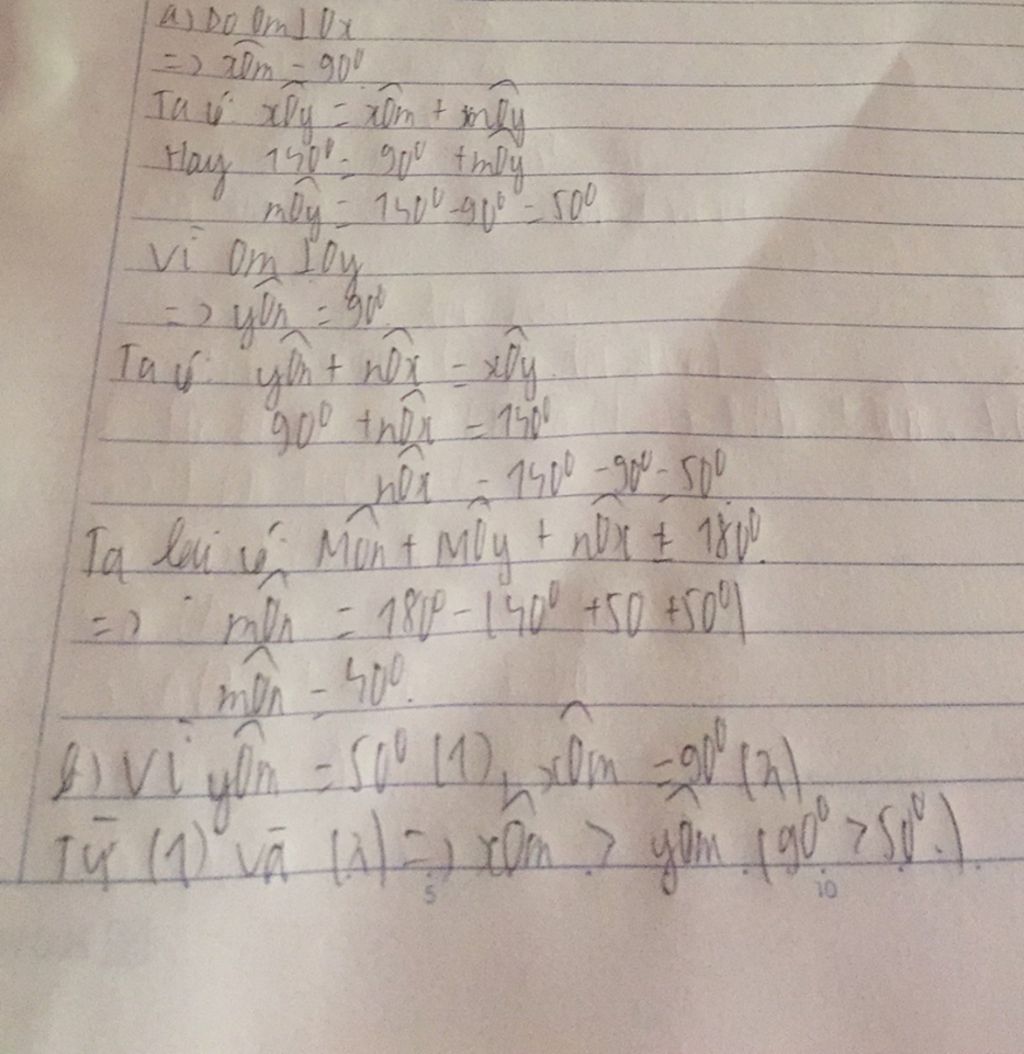 a) Do Om ⊥ Ox
=> xÔm = 90⁰
Ta có: xÔy = xÔm + mÔy
Hay 140⁰ = 90⁰ + mÔy
mÔy = 140⁰ - 90⁰ = 50⁰
Vì Om ⊥ Oy
=> yÔn = 90⁰
Ta có: yÔn + nÔx = xÔy
90⁰ + nÔx = 140⁰
nÔx = 140⁰ - 90⁰ = 50⁰
Ta lại có: MÔn + MÔy + nÔx = 180⁰.
=> mÔn = 180⁰ - (40⁰ + 50 + 50⁰)
mÔn = 40⁰.
b) Vì yÔm = 50⁰ (1), xÔm = 90⁰ (2)
Từ (1) và (2) => xÔm > yÔm (90⁰ > 50⁰.).
5 10